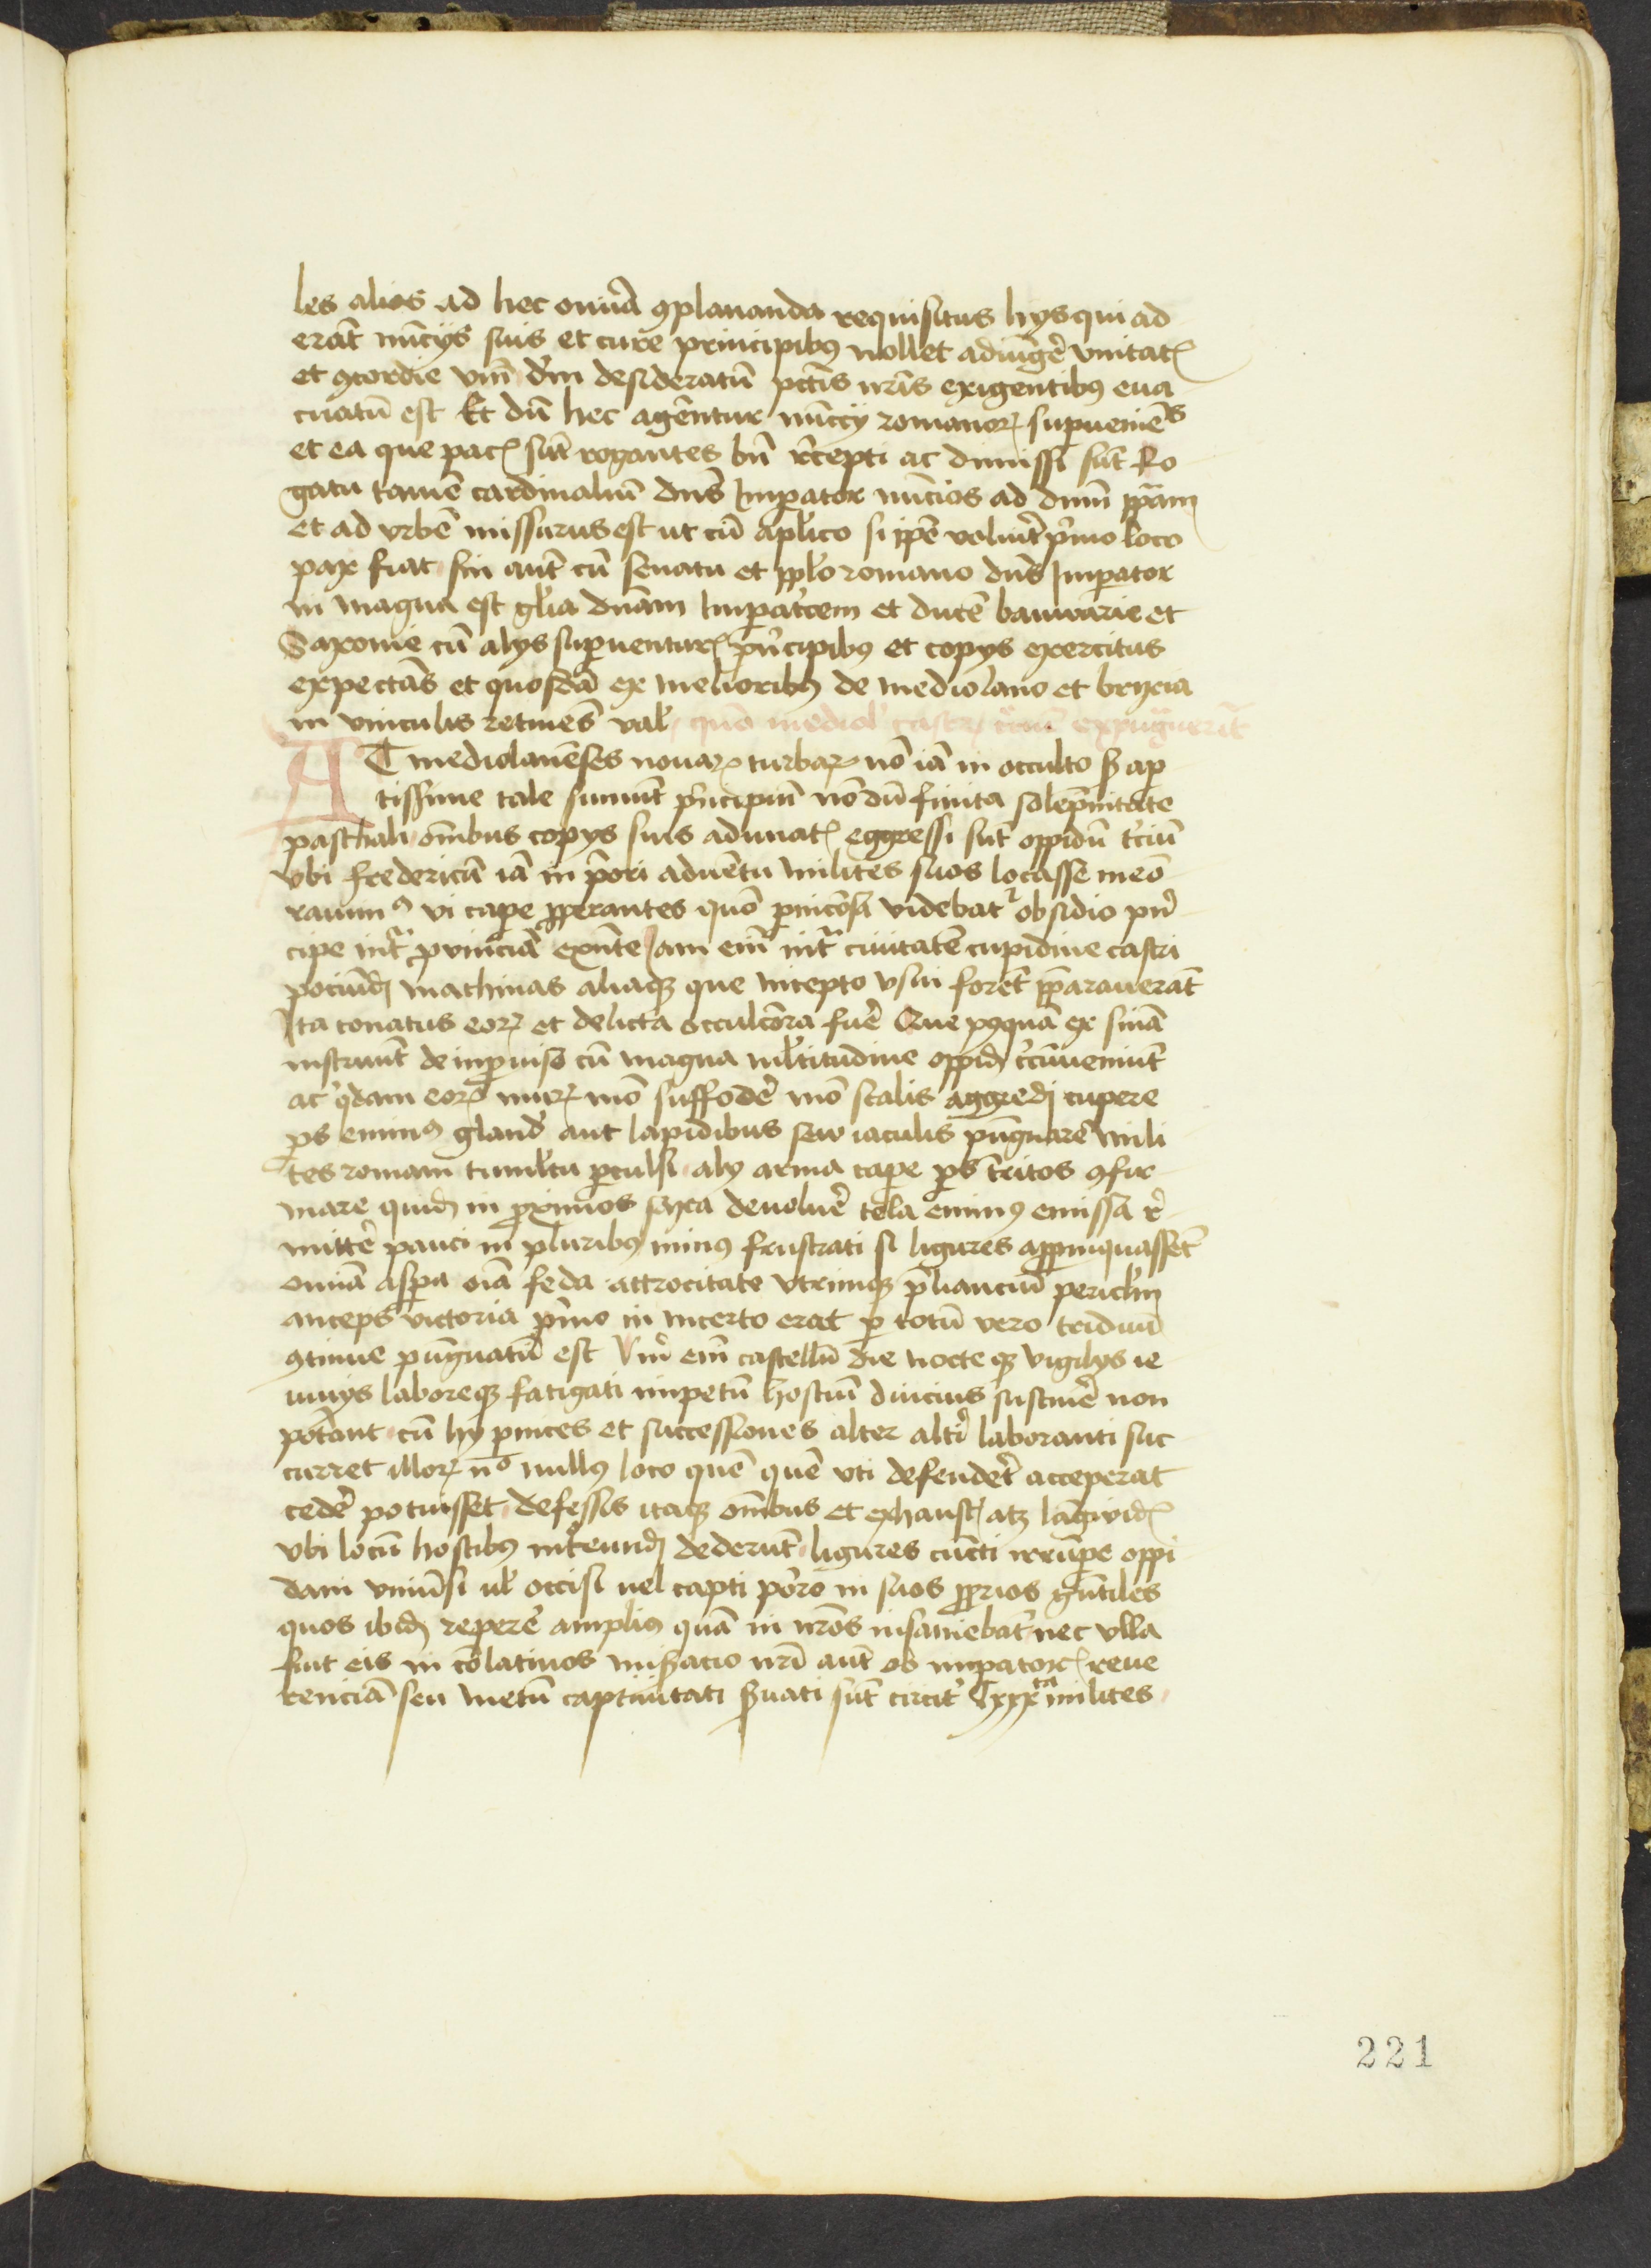 les alios ad hec omnia ꝯplananda requisitus hys qui ad
erāt nūcijs suis et cure principibꝰ nollet adiūgē vnitatꝭ
et ꝯcordie vm̄ dīm desideratū pctīs nrīs exigentibꝰ eua
cuatū est Et dū hec agentur nūccij romanoꝝ supueniēs
et ea que pacꝭ sūt rogantes bn̄ rcepti ac dimissi sūt Ro
gatu tamē cardinaliū dn̄s Imperator nūcios ad dnm̄ ppam
et ad vrbē missurus est ut cū aplico si ipē voluīt pͥmo loco
pax fiat sin aut cū senatu et pplo romano dn̄s Imperator
in magna est gl̄ia dnām Impatͥcem et ducē bauuarie et
Saxonie cū alys supuenturꝭ pͥncipibꝰ et copys exercitus
expectās et quosdā ex melioribꝰ de mediolano et brixia
in vinculis retinēs val quō mediol castrꝫ expugnuerīt
AT mediolanēses nouaꝝ turbaꝝ nō iā in occulto sꝫ ap
tissime tale sumūt pͥncipiū nō dū finita solēpnitate
paschali om̄ibus copys suis adunatꝭ eggressi sūt oppidū tͥciū
vbi fredericū iā in pͥori aduētu milites suos locasse meō
rauimꝰ vi cape pperantes quō pnicōsa videbatᷣ obsidio pͥn
cipe intᷓ ꝓuinciā exnte Jam em̄ intᷓ ciuitatē cupidine castri
pociūdi machinas aliaqꝫ que incepto vsui forēt pparauerāt
Ita conatus eoꝝ et delicta occulcōra fuē Que pꝰquā ex sniā
instruūt de inpuiso cū magna ml̄titudine oppidꝫ cͥcūueniūt
ac qͥdam eoꝝ muꝝ mō suffodē mō scalis aggredi cupere
ps eminꝰ glandͤ aut lapidibus seu iaculis pūgnare mili
tes romam tumlͨtu pculsi aly arma cape ps tͥritos ꝯfir
mare quidꝫ in pximos saxa deuoluē tela eminꝰ emissa rͤ
mittē pauci in pluribꝰ minꝰ frustrati si ligures appinquassēt
omnia aspa oīa feda attrocitate vtrimqꝫ pͤliantiū pericl̄m
anceps victoria pͥmo in incerto erat p totū vero triduū
ꝯtinue pūgnatū est Vm̄ em̄ castellū die nocte qꝫ vigilys ie
iunijs laboreqꝫ fatigati impetū hostiū diucius sustinē non
poterant cū hy pnices et successiones alter altͥ laboranti suc
curret illoꝝ nͦ nullꝰ loco quē quē vti defendēt acceperat
cedē potuisset defessis itaqꝫ om̄ibus et exhaustꝭ atqꝫ lagwidꝭ
vbi locū hostibꝰ intͦeundi dederūt ligures cūcti irrūpe oppi
dani vniūsi ul̄ occisi uel capti porro in suos pprios gn̄tiles
quos ibidꝫ reperē ampliꝰ quā in nrōs insaniebāt nec vlla
fuit eis in cōlatinos misatio nrī aut ob imperatorꝭ reue
renciā seu metū captiuitati suati sūt circitͥ Cxxxᵗᵃ milites
221